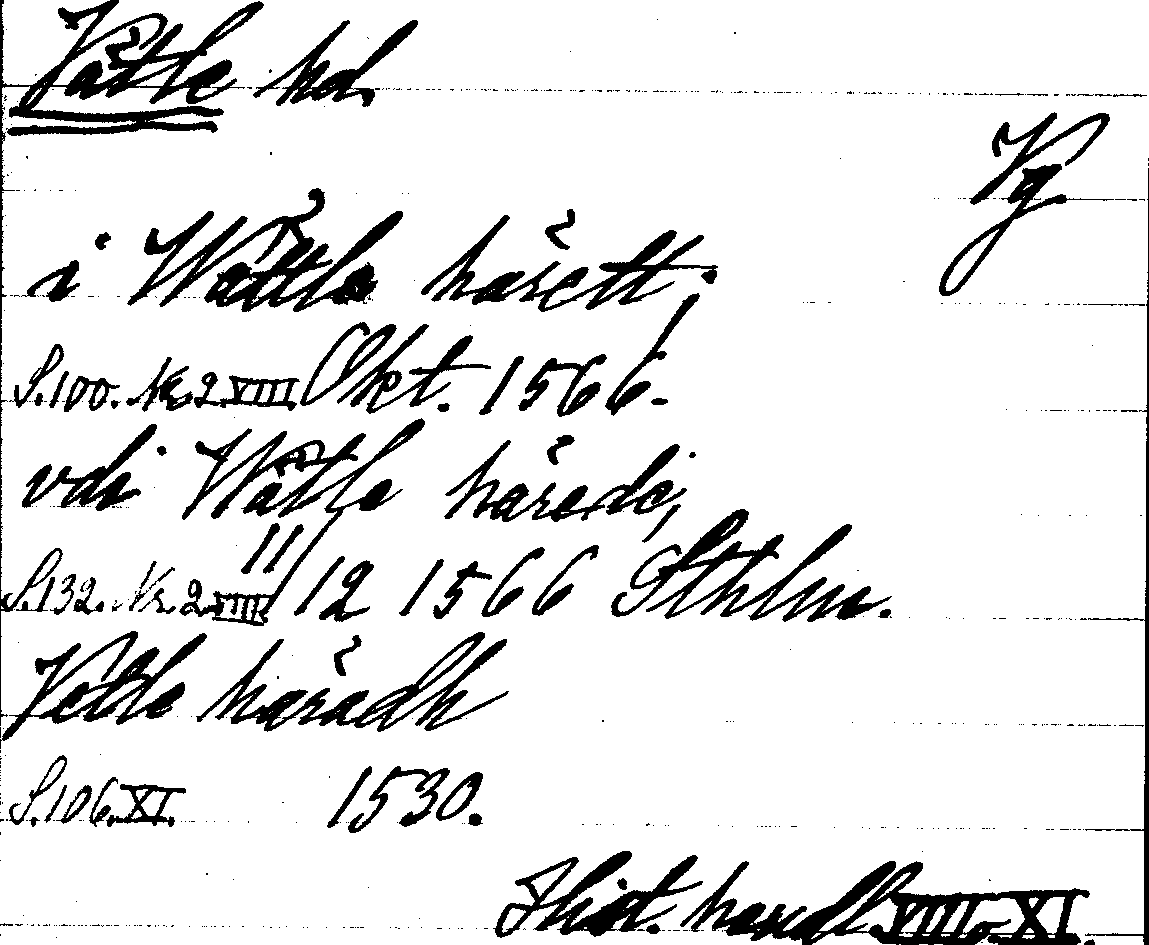 Vättle hd.
Vg
i Wättle härett;
S.100. Nr. 2. VIII. Okt. 1566.
vdi Wätle härade,
S.132. Nr. 2 VIII. 11/12 1566 Sthlm.
Vetle häradh
S.106. XI. 1530.
Hist. handl. VIII o XI.